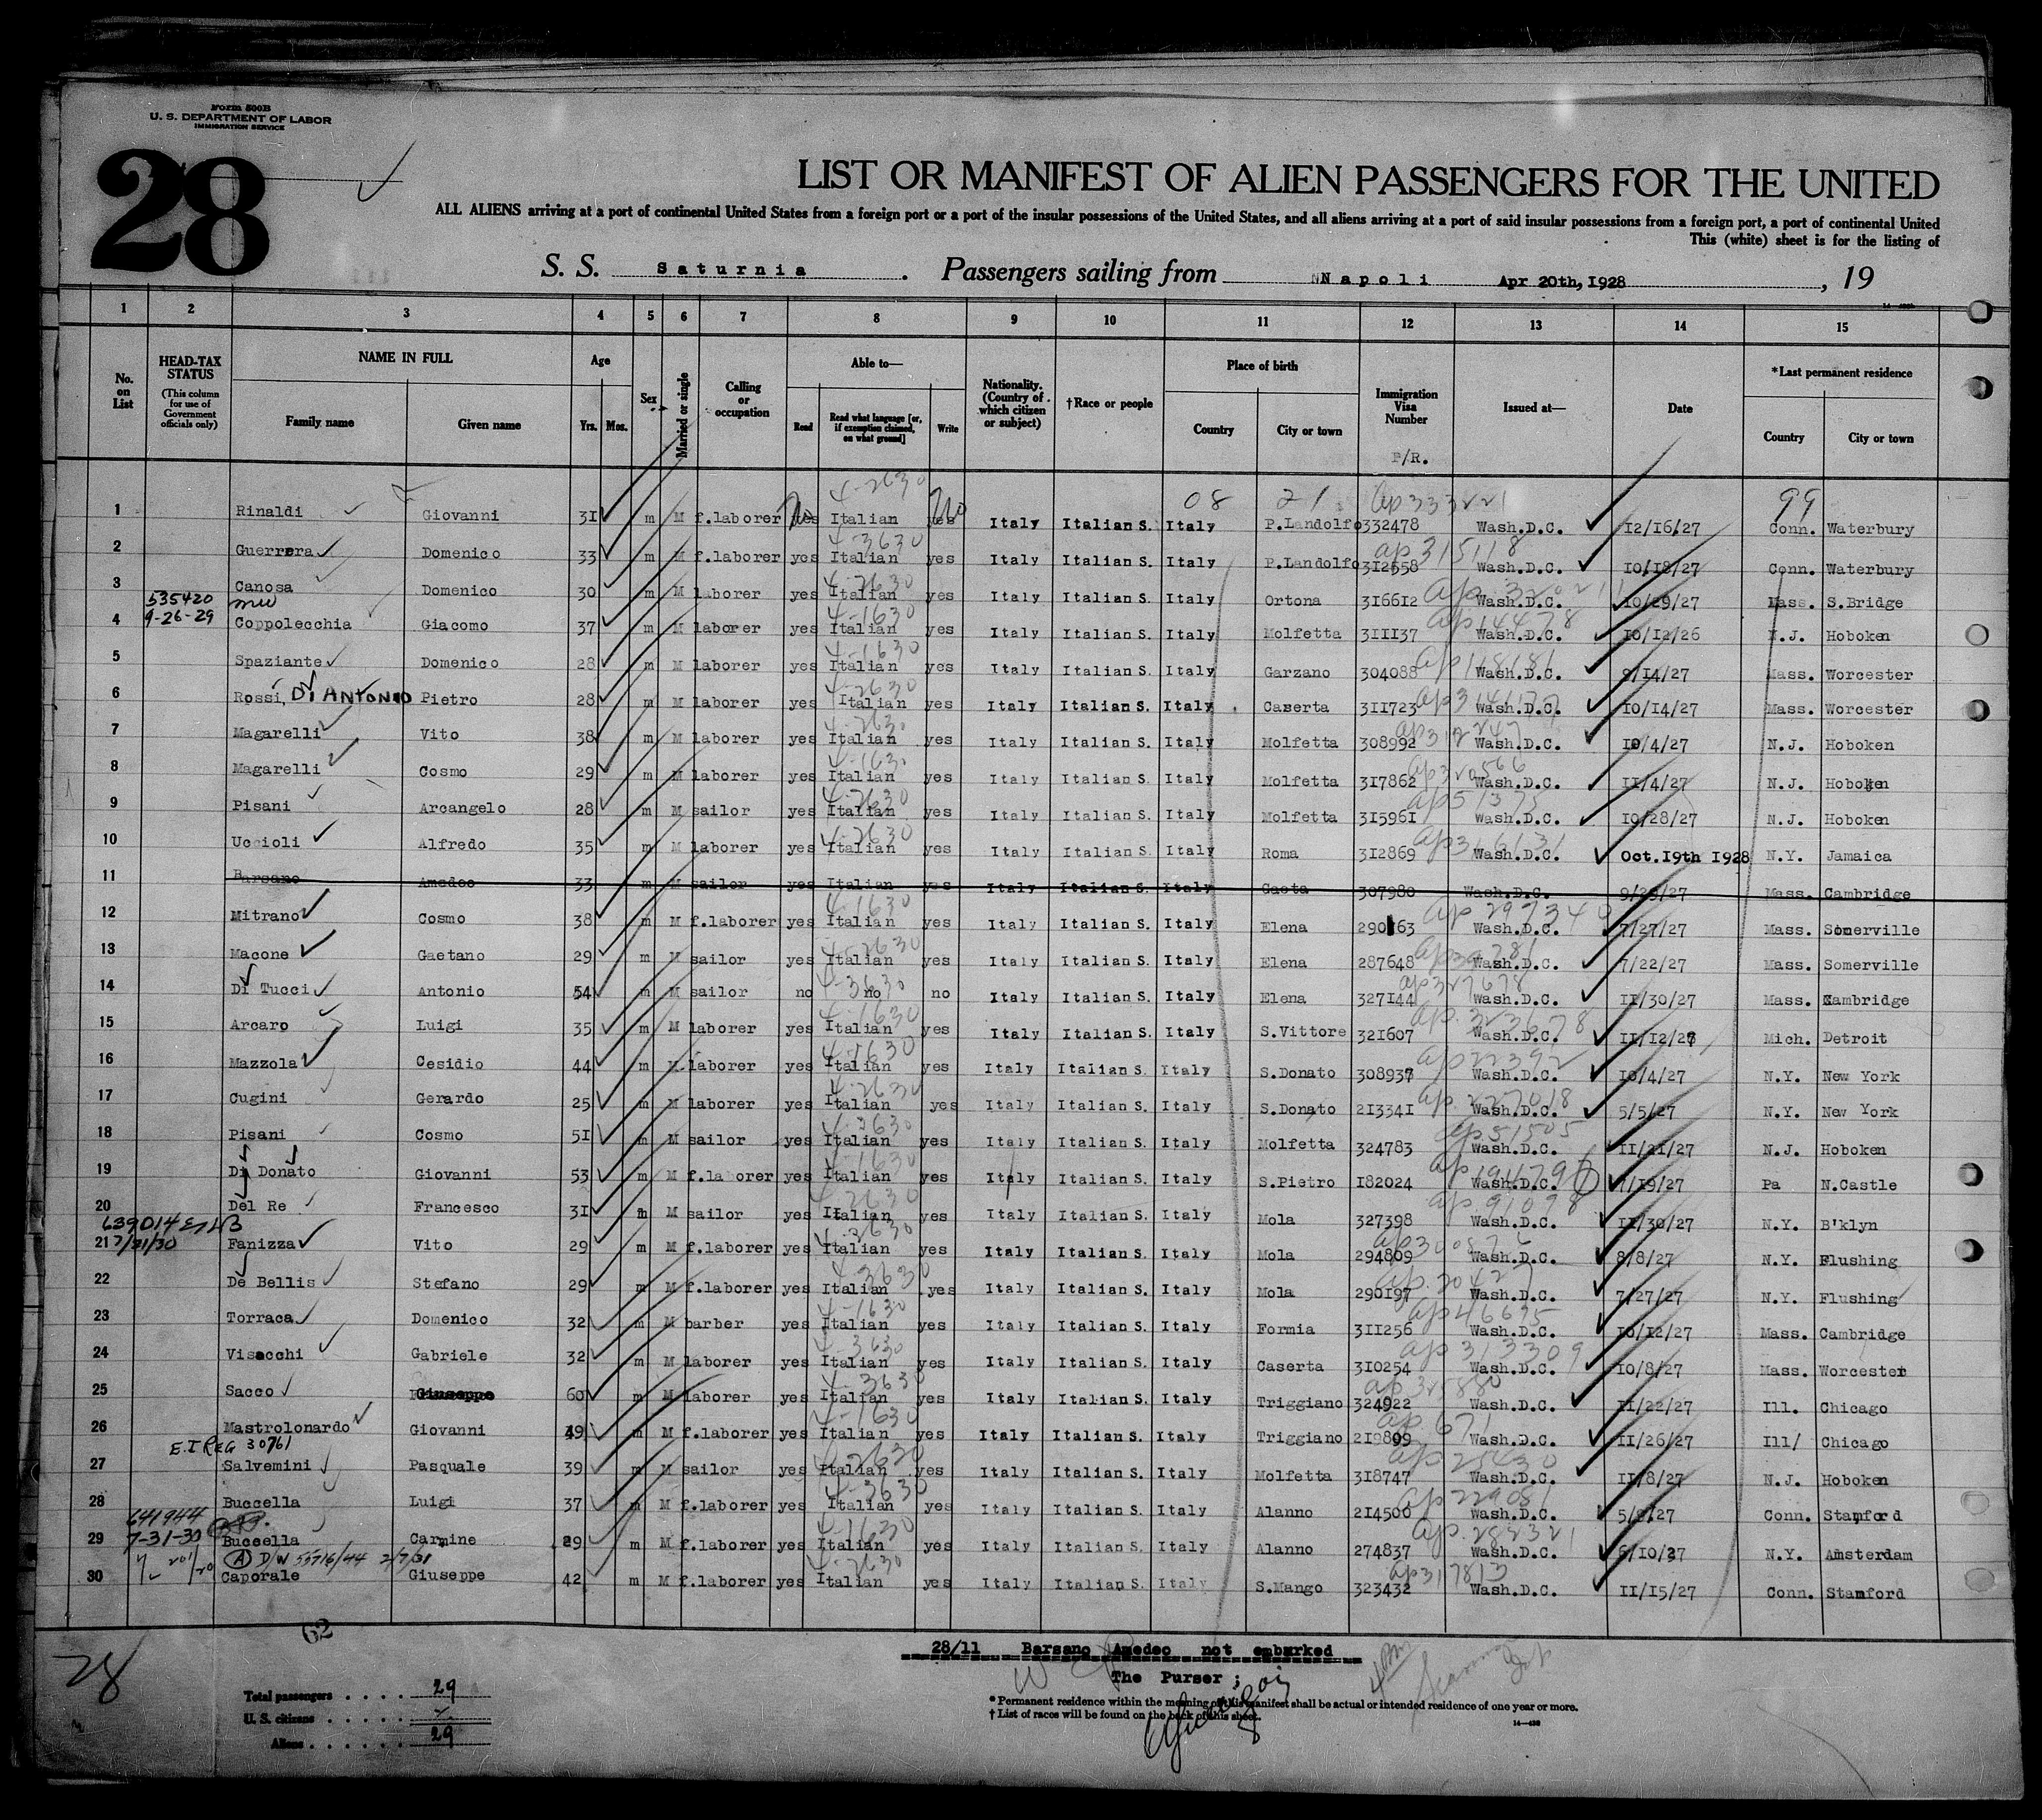 Form 500B
U. S. DEPARTMENT OF LABOR
IMMIGRATION SERVICE
28
LIST OR MANIFEST OF ALIEN PASSENGERS FOR THE UNITED
ALL ALIENS arriving at a port of continental United States from a foreign port or a port of the insular possessions of the United States, and all aliens arriving at a port of said insular possessions from a foreign port, a port of continental United
This (white) sheet is for the listing of
S. S. Saturnia . Passengers sailing from NNapoli Apr 20th, 1928 , 19
1 2 3 4 5 6 7 8 9 10 11 12 13 14 15
No. on List HEAD-TAX STATUS (This column for use of Government officials only) NAME IN FULL Family name Given name Age Yrs. Mos. Sex Married or single Calling or occupation Able to— Read Read what language [or, if exemption claimed, on what ground] Write Nationality. (Country of which citizen or subject) †Race or people Place of birth Country City or town Immigration Visa Number Issued at— Date *Last permanent residence Country City or town
P/R.
4-2630 08 21 99
1 Rinaldi Giovanni 31 m M f.laborer No Italian No Italy Italian S. Italy P.Landolfo 332478 Wash.D.C. 12/16/27 Conn. Waterbury
2 Guerrera Domenico 33 m M f.laborer yes Italian yes Italy Italian S. Italy P.Landolfo 312558 Wash.D.C. 10/18/27 Conn. Waterbury
3 Canosa Domenico 30 m M laborer yes Italian yes Italy Italian S. Italy Ortona 316612 Wash.D.C. 10/29/27 Mass. S.Bridge
535420
9-26-29
4 Coppolecchia Giacomo 37 m M laborer yes Italian yes Italy Italian S. Italy Molfetta 311137 Wash.D.C. 10/12/26 N.J. Hoboken
5 Spaziante Domenico 28 m M laborer yes Italian yes Italy Italian S. Italy Garzano 304088 Wash.D.C. 9/14/27 Mass. Worcester
6 Rossi, Di ANTONIO Pietro 28 m M laborer yes Italian yes Italy Italian S. Italy Caserta 311723 Wash.D.C. 10/14/27 Mass. Worcester
7 Magarelli Vito 38 m M laborer yes Italian yes Italy Italian S. Italy Molfetta 308992 Wash.D.C. 10/4/27 N.J. Hoboken
8 Magarelli Cosmo 29 m M laborer yes Italian yes Italy Italian S. Italy Molfetta 317862 Wash.D.C. 11/4/27 N.J. Hoboken
9 Pisani Arcangelo 28 m M sailor yes Italian yes Italy Italian S. Italy Molfetta 315961 Wash.D.C. 10/28/27 N.J. Hoboken
10 Uccioli Alfredo 35 m M laborer yes Italian yes Italy Italian S. Italy Roma 312869 Wash.D.C. Oct.19th 1928 N.Y. Jamaica
11 Barsano Amedeo 33 m M sailor yes Italian yes Italy Italian S. Italy Gaeta 307980 Wash.D.C. 9/29/27 Mass. Cambridge
12 Mitrano Cosmo 38 m M f.laborer yes Italian yes Italy Italian S. Italy Elena 290163 Wash.D.C. 7/27/27 Mass. Somerville
13 Macone Gaetano 29 m M sailor yes Italian yes Italy Italian S. Italy Elena 287648 Wash.D.C. 7/22/27 Mass. Somerville
14 Di Tucci Antonio 54 m M sailor no no no Italy Italian S. Italy Elena 327144 Wash.D.C. 11/30/27 Mass. Cambridge
15 Arcaro Luigi 35 m M laborer yes Italian yes Italy Italian S. Italy S.Vittore 321607 Wash.D.C. 11/12/27 Mich. Detroit
16 Mazzola Cesidio 44 m M laborer yes Italian yes Italy Italian S. Italy S.Donato 308937 Wash.D.C. 10/4/27 N.Y. New York
17 Cugini Gerardo 25 m M laborer yes Italian yes Italy Italian S. Italy S.Donato 213341 Wash.D.C. 5/5/27 N.Y. New York
18 Pisani Cosmo 51 m M sailor yes Italian yes Italy Italian S. Italy Molfetta 324783 Wash.D.C. 11/21/27 N.J. Hoboken
19 Di Donato Giovanni 53 m M f.laborer yes Italian yes Italy Italian S. Italy S.Pietro 182024 Wash.D.C. 7/19/27 Pa N.Castle
20 Del Re Francesco 31 m M sailor yes Italian yes Italy Italian S. Italy Mola 327398 Wash.D.C. 11/30/27 N.Y. B'klyn
639014
7/31/30
21 Fanizza Vito 29 m M f.laborer yes Italian yes Italy Italian S. Italy Mola 294809 Wash.D.C. 8/8/27 N.Y. Flushing
22 De Bellis Stefano 29 m M f.laborer yes Italian yes Italy Italian S. Italy Mola 290197 Wash.D.C. 7/27/27 N.Y. Flushing
23 Torraca Domenico 32 m M barber yes Italian yes Italy Italian S. Italy Formia 311256 Wash.D.C. 10/12/27 Mass. Cambridge
24 Visocchi Gabriele 32 m M laborer yes Italian yes Italy Italian S. Italy Caserta 310254 Wash.D.C. 10/8/27 Mass. Worcester
25 Sacco Giuseppe 60 m M laborer yes Italian yes Italy Italian S. Italy Triggiano 324922 Wash.D.C. 11/22/27 Ill. Chicago
26 Mastrolonardo Giovanni 49 m M f.laborer yes Italian yes Italy Italian S. Italy Triggiano 219899 Wash.D.C. 11/26/27 Ill/ Chicago
E.I REG 30761
27 Salvemini Pasquale 39 m M sailor yes Italian yes Italy Italian S. Italy Molfetta 318747 Wash.D.C. 11/8/27 N.J. Hoboken
28 Buccella Luigi 37 m M f.laborer yes Italian yes Italy Italian S. Italy Alanno 214500 Wash.D.C. 5/9/27 Conn. Stamford
641944
7-31-30
29 Buccella Carmine 29 m M f.laborer yes Italian yes Italy Italian S. Italy Alanno 274837 Wash.D.C. 6/10/27 N.Y. Amsterdam
(A) D/W 55716/44 2/7/31
30 Caporale Giuseppe 42 m M f.laborer yes Italian yes Italy Italian S. Italy S.Mango 323432 Wash.D.C. 11/15/27 Conn. Stamford
62
28/11 Barsano Amedeo not embarked
The Purser ;
28
Total passengers . . . . 29
U. S. citizens . . . . .
Aliens . . . . . . 29
* Permanent residence within the meaning of this manifest shall be actual or intended residence of one year or more.
† List of races will be found on the back of this sheet.